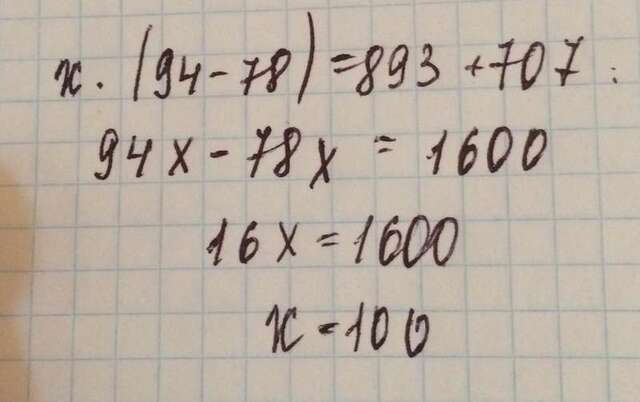 x · (94 - 78) = 893 + 707 :
94x - 78x = 1600
16x = 1600
x = 100